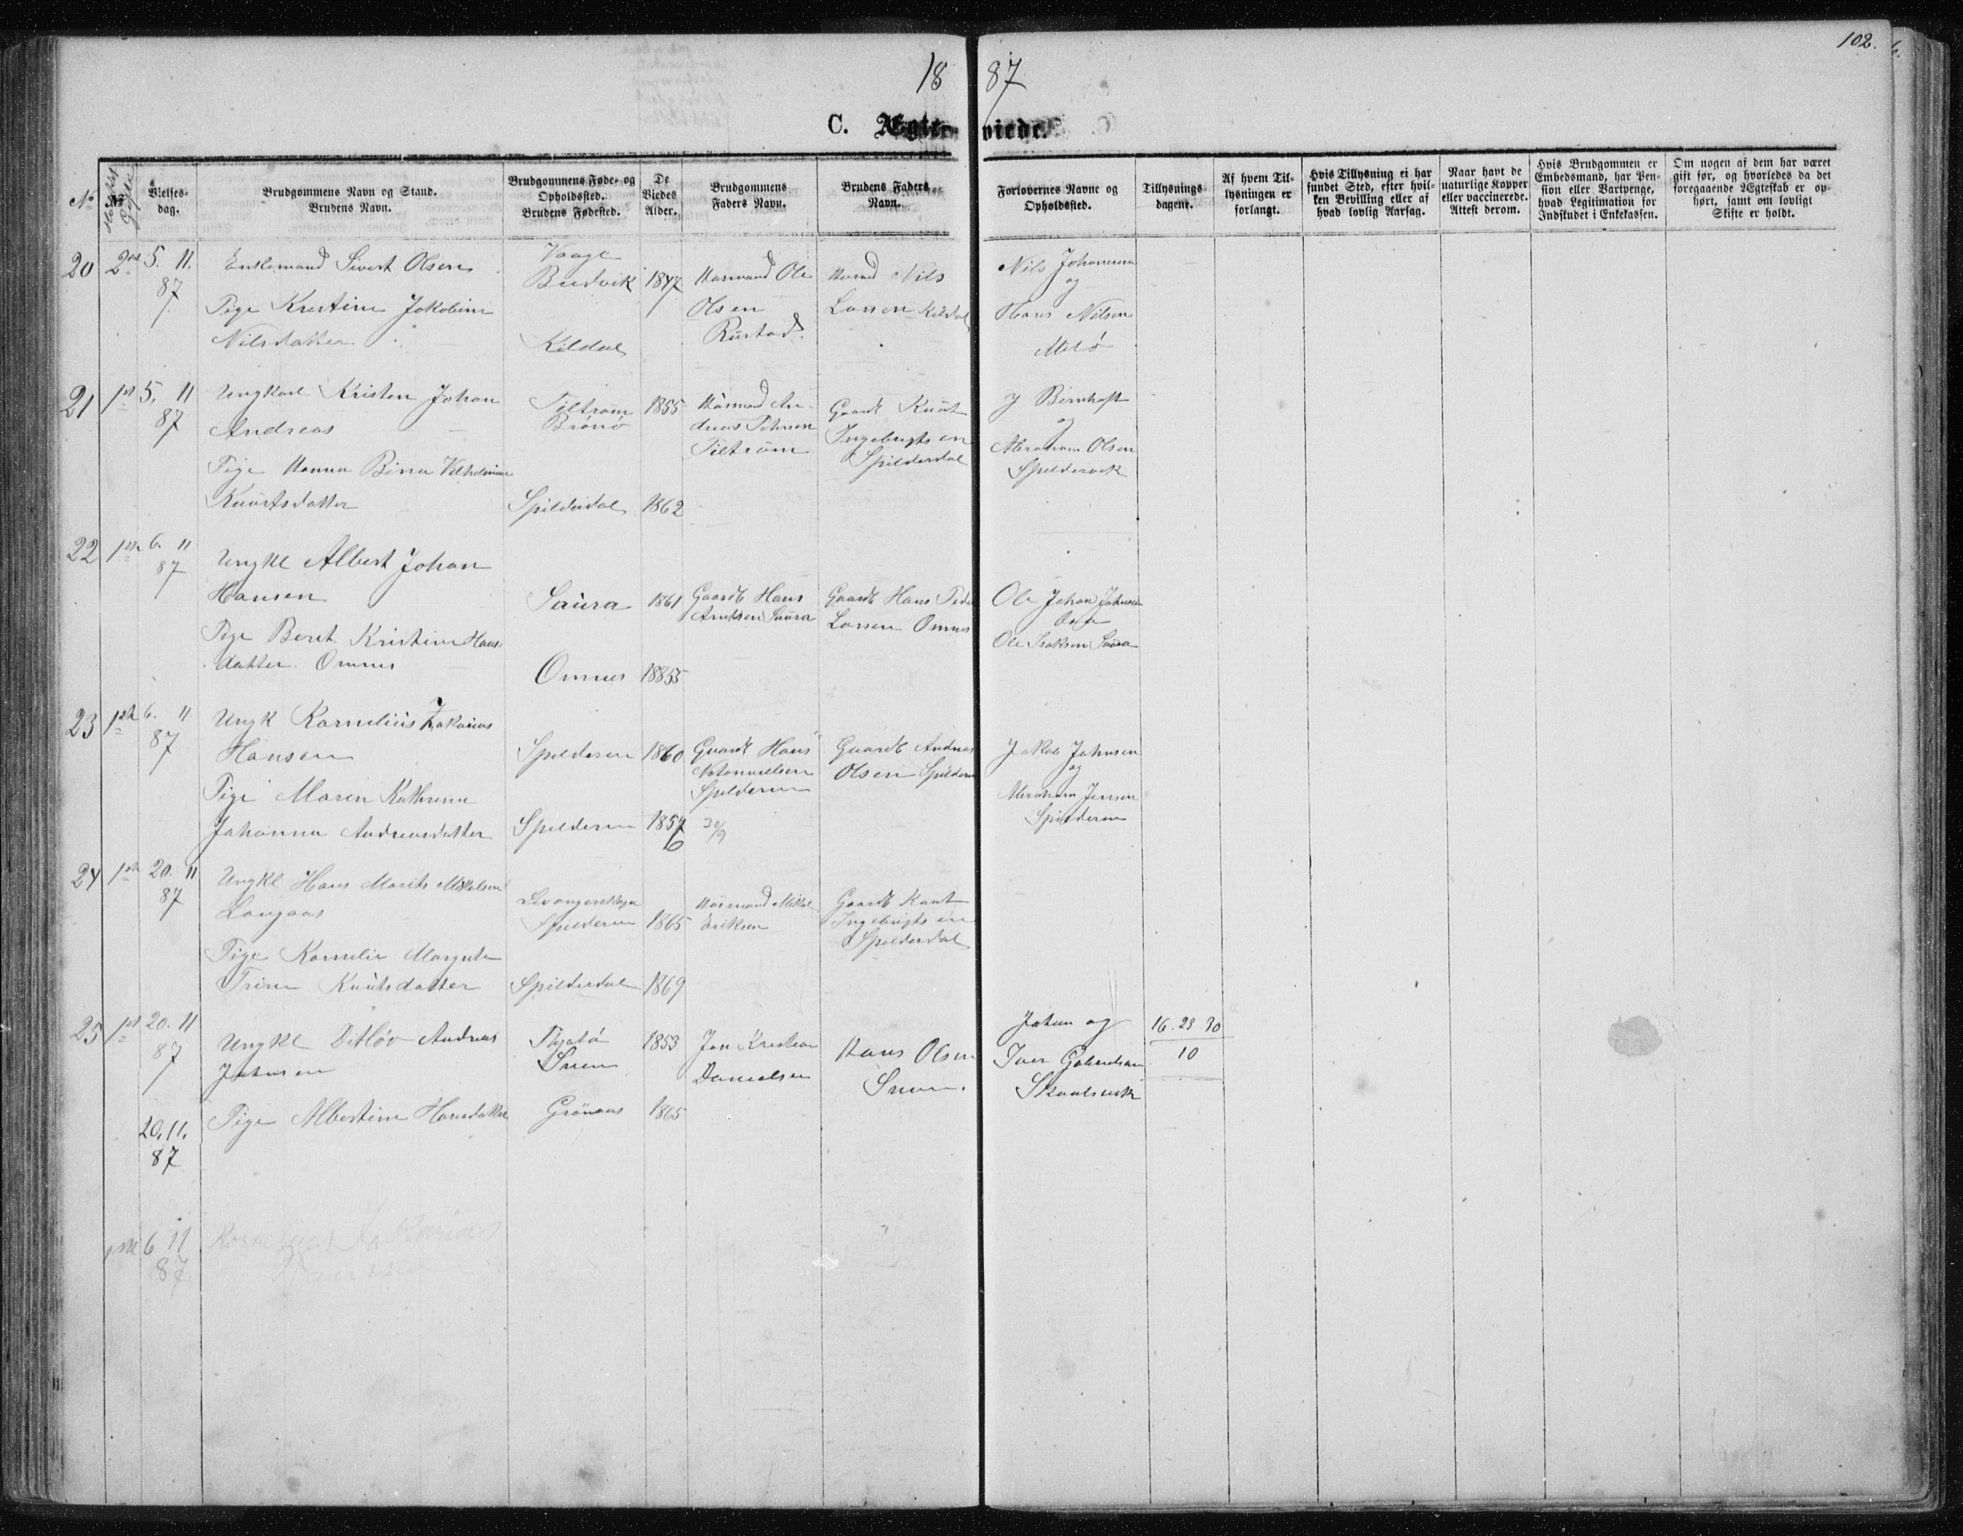 102.
18 87
C. Ægte- viede.
No
No
Vielses-
dag.
Brudgommens Navn og Stand.
Brudens Navn.
Brudgommens Føde- og
Opholdssted.
Brudens Fødested.
De
Viedes
Alder.
Brudgommens
Faders Navn.
Brudens Faders
Navn.
Forlovernes Navne og
Opholdssted.
Tillysnings-
dagene.
Af hvem Til-
lysningen er
forlangt.
Hvis Tillysning ei har
fundet Sted, efter hvil-
ken Bevilling eller af
hvad lovlig Aarsag.
Naar havt de
naturlige Kopper
eller vaccinerede.
Attest derom.
Hvis Brudgommen er
Embedsmand, har Pen-
sion eller Vartpenge,
hvad Legitimation for
Indskudet i Enkekassen.
Om nogen af dem har været
gift før, og hvorledes da det
foregaaende Ægteskab er op-
hørt, samt om lovligt
Skifte er holdt.
20
5. 11.
87
Enkemand Sivert Olsen
Pige Kristine Jakobine
Nilsdatter
Vaage
Bredvik
Kildal
1847
Husmand Ole
Olsen
Rustad.
Husmd Nils
Larsen Kildal
Nils Johansen
og
Hans Nilsen
Melø
21
5. 11
87
Ungkarl Kristen Johan
Andreas
Pige Hanna Birna Vilhelmine
Knutsdatter
Tiltrem
Brønø
Spilderdal
1855
1862
Husmand An-
dreas Johnsen
Gaardb Knut
Ingebrigtsen
Spilderdal
J Bernhoft
og
Abraham Olsen
Spildervik
22
6. 11
87
Ungkl Albert Johan
Hansen
Pige Beret Kristine Hans-
datter Omnes
Saura
Omnes
1861
18855
Gaardb Hans
Arntsen Saura
Gaardb Hans Peder
Larsen Omnes
Ole Johan Johnsen
Ole Isaksen Saura
23
6. 11
87
Ungk Kornelius Zakarias
Hansen
Pige Maren Kathrine
Johanna Andreasdatter
Spilderen
Spilderen
1860
1857
6
Gaardb Hans
Natanielsen
Spilderen
30/9
Gaardb Andreas
Olsen Spilderen
Jakob Johnsen
og
Abraham Jensen
Spilderen
24
20. 11
87
Ungkl Hans Morits Mikalsen
Langaas
Pige Kornelie Margrete
Trine Knutsdatter
Spilderen
Spilderdal
1865
1869
Husmand Mikal
Eriksen
Gaardb Knut
Ingebrigtsen
Spilderdal
25
20. 11
87
Ungkl Ditløv Andreas
Johnsen
20. 11.
87
Pige Albertine Hansdatter
Grønaas
1853
1865
Jon Kristian
Danielsen
Hans Olsen
Johan og
Iver Gabrielsen
Skaalsvik
16. 23 30
10
6 11
87
Kornelius Zakarias